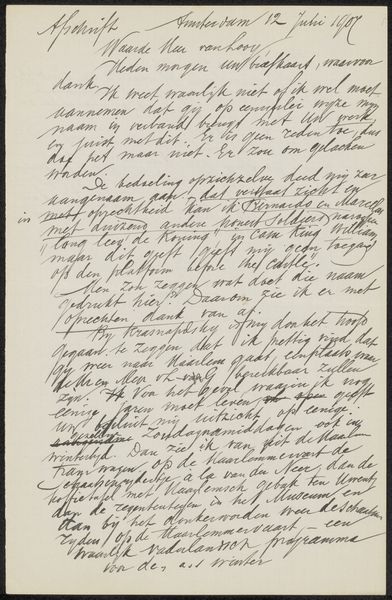 Afschrift Amsterdam 12 Juli 1907
Waarde Heer van Looy,
Heden morgen uw briefkaart, waarvoor
dank.
Ik weet waarlijk niet of ik wel moet
aannemen dat gij op eenigerlei wijze mijn
naam in verband brengt met uw werk,
en juist met dit. Er is geen reden toe, dus
doe het maar niet. Er zou om gelachen
worden.
De bedoeling opzichzelve deed mij zeer
aangenaam aan, dat verstaat zich en
in met oprechtheid kan ik Bernardo en Marcellus
met duizend andere "honest Soldiers"
"long leev' de Koning" in casu King William
maar dit geeft mij geen toegang
op den platform before the Castle.
Men zou zeggen wat doet die naam
gedrukt hier? Daarom zie ik er met
oprechten dank van af.
Bij Krasnapolsky is mij door het hoofd
gegaan te zeggen dat ik prettig vind dat
gij weer naar Haarlem gaat, en plaats waar
de Heer en Mevr. v. L. bereikbaar zullen
zijn. Voor het geval waarin ik nog
eenige jaren moet leven geeft
uw besluit mij uitzicht op eenige
gezellige Zondagnamiddagen, ook in
wintertijd. Dan zie ik van uit de Haarlem
tramwagen op de Haarlemmervaart de
schaatsenrijdertjes à la van der Neer, dan de
koffietafel met Haarlemsch gebak ten Uwent,
dan de regentenstukken in het Museum, en
dan bij het donkerworden weer de schaatsen
rijders op de Haarlemmervaart — een
waarlijk vaderlandsch programma
voor de a.s. winter